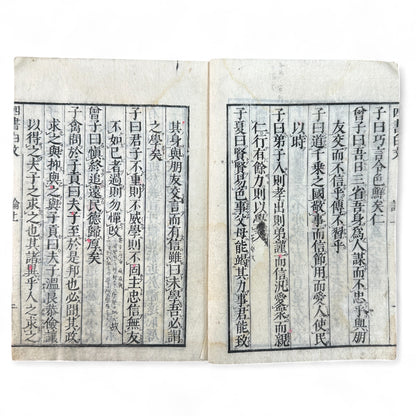 子曰巧言令色鮮矣仁
曾子曰吾日三省吾身爲人謀而不忠乎與朋
友交而不信乎傳不習乎
子曰道千乘之國敬事而信節用而愛人使民
以時
子曰弟子入則孝出則弟謹而信汎愛衆而親
仁行有餘力則以學文
子夏曰賢賢易色事父母能竭其力事君能致
其身與朋友交言而有信雖曰未學吾必謂
之學矣
子曰君子不重則不威學則不固主忠信無友
不如己者過則勿憚改
曾子曰愼終追遠民德歸厚矣
子禽問於子貢曰夫子至於是邦也必聞其政
求之與抑與之與子貢曰夫子溫良恭儉讓
以得之夫子之求之也其諸異乎人之求之
四書白文
論上